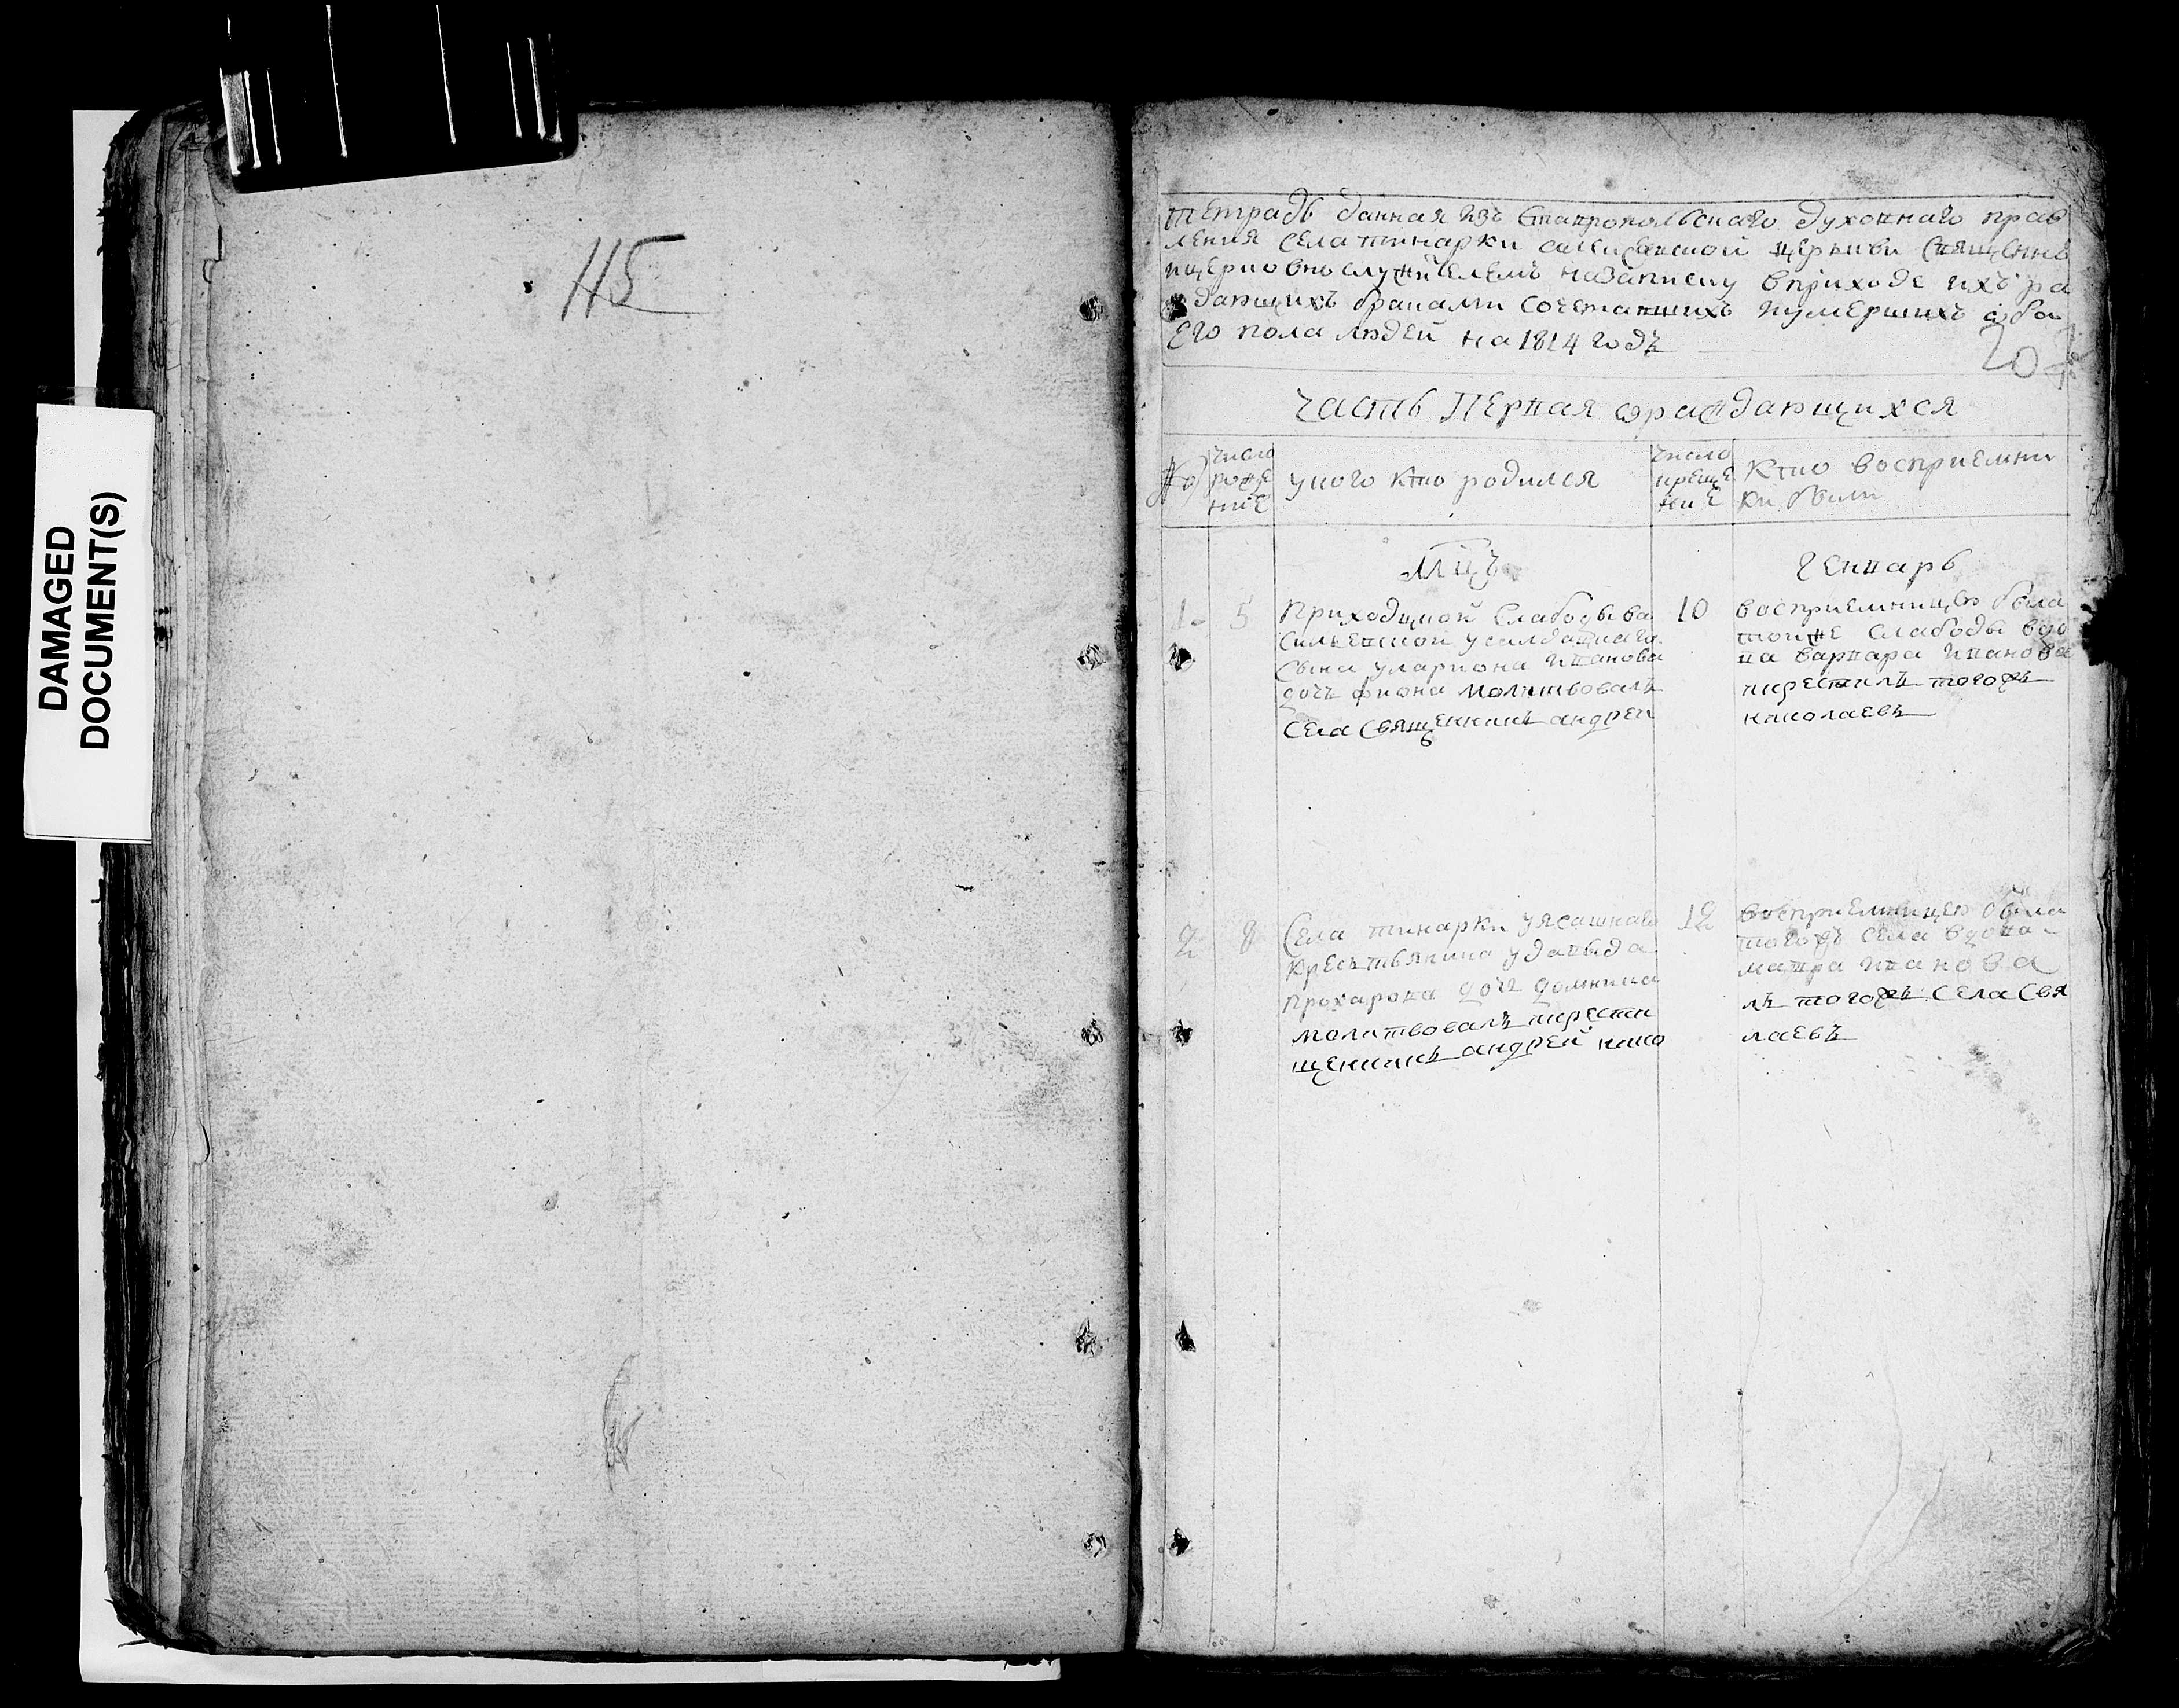 DAMAGED
DOCUMENT(S)
115
Тетрадь данная изъ Ставропольскаго духовнаго прав
ления села тинарки церкви священно
ицерковно служителемъ назаписку вприходе ихъ ра
дающихъ браками сочетавшихъ иумершихъ обо
его пола людей на 1814 годъ
20
часть Первая ѡраждающихся
№
число
рожде
ние
укого кто родился
число
креще
ние
Кто восприемни
ки были
Мцъ
Генварь
1.
5
Приходцкой слабоды ва
сильевской усалдацкаго
сына улариона иванова
дочь фиона молитвовалъ
села священникъ андрей
10
восприемницею была
тойже слабоды вдо
ва варвара иванова
икрестилъ тогожъ
николаевъ
2
8
Села тинарки уясашнаго
крестьянина удавыда
прохарова дочь домника
молитвовалъ икрести
щенникъ андрей нико
12
восприемницею была
тогожъ села вдова
мавра иванова
лъ тогожъ села свя
лаевъ